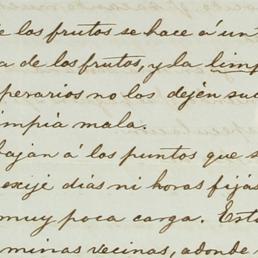 de los frutos se hace á un
a de los frutos, y la limp
perarios no los dejen suc
impia mala.
bajan á los puntos que s
exije dias ni horas fijas
muy poca carga. Est
minas vecinas, adonde